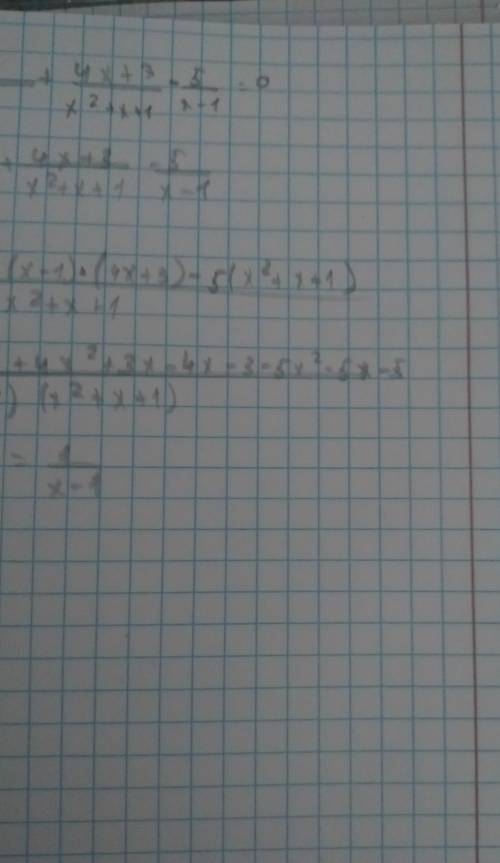 + (4x+3)/(x²+x+1) - 5/(x-1) = 0
+ (4x+3)/(x²+x+1) - 5/(x-1)
(x-1)·(4x+3)-5(x²+x+1)
x²+x+1
+4x²+3x-4x-3-5x²-5x-5
) (x²+x+1)
= 1/(x-1)